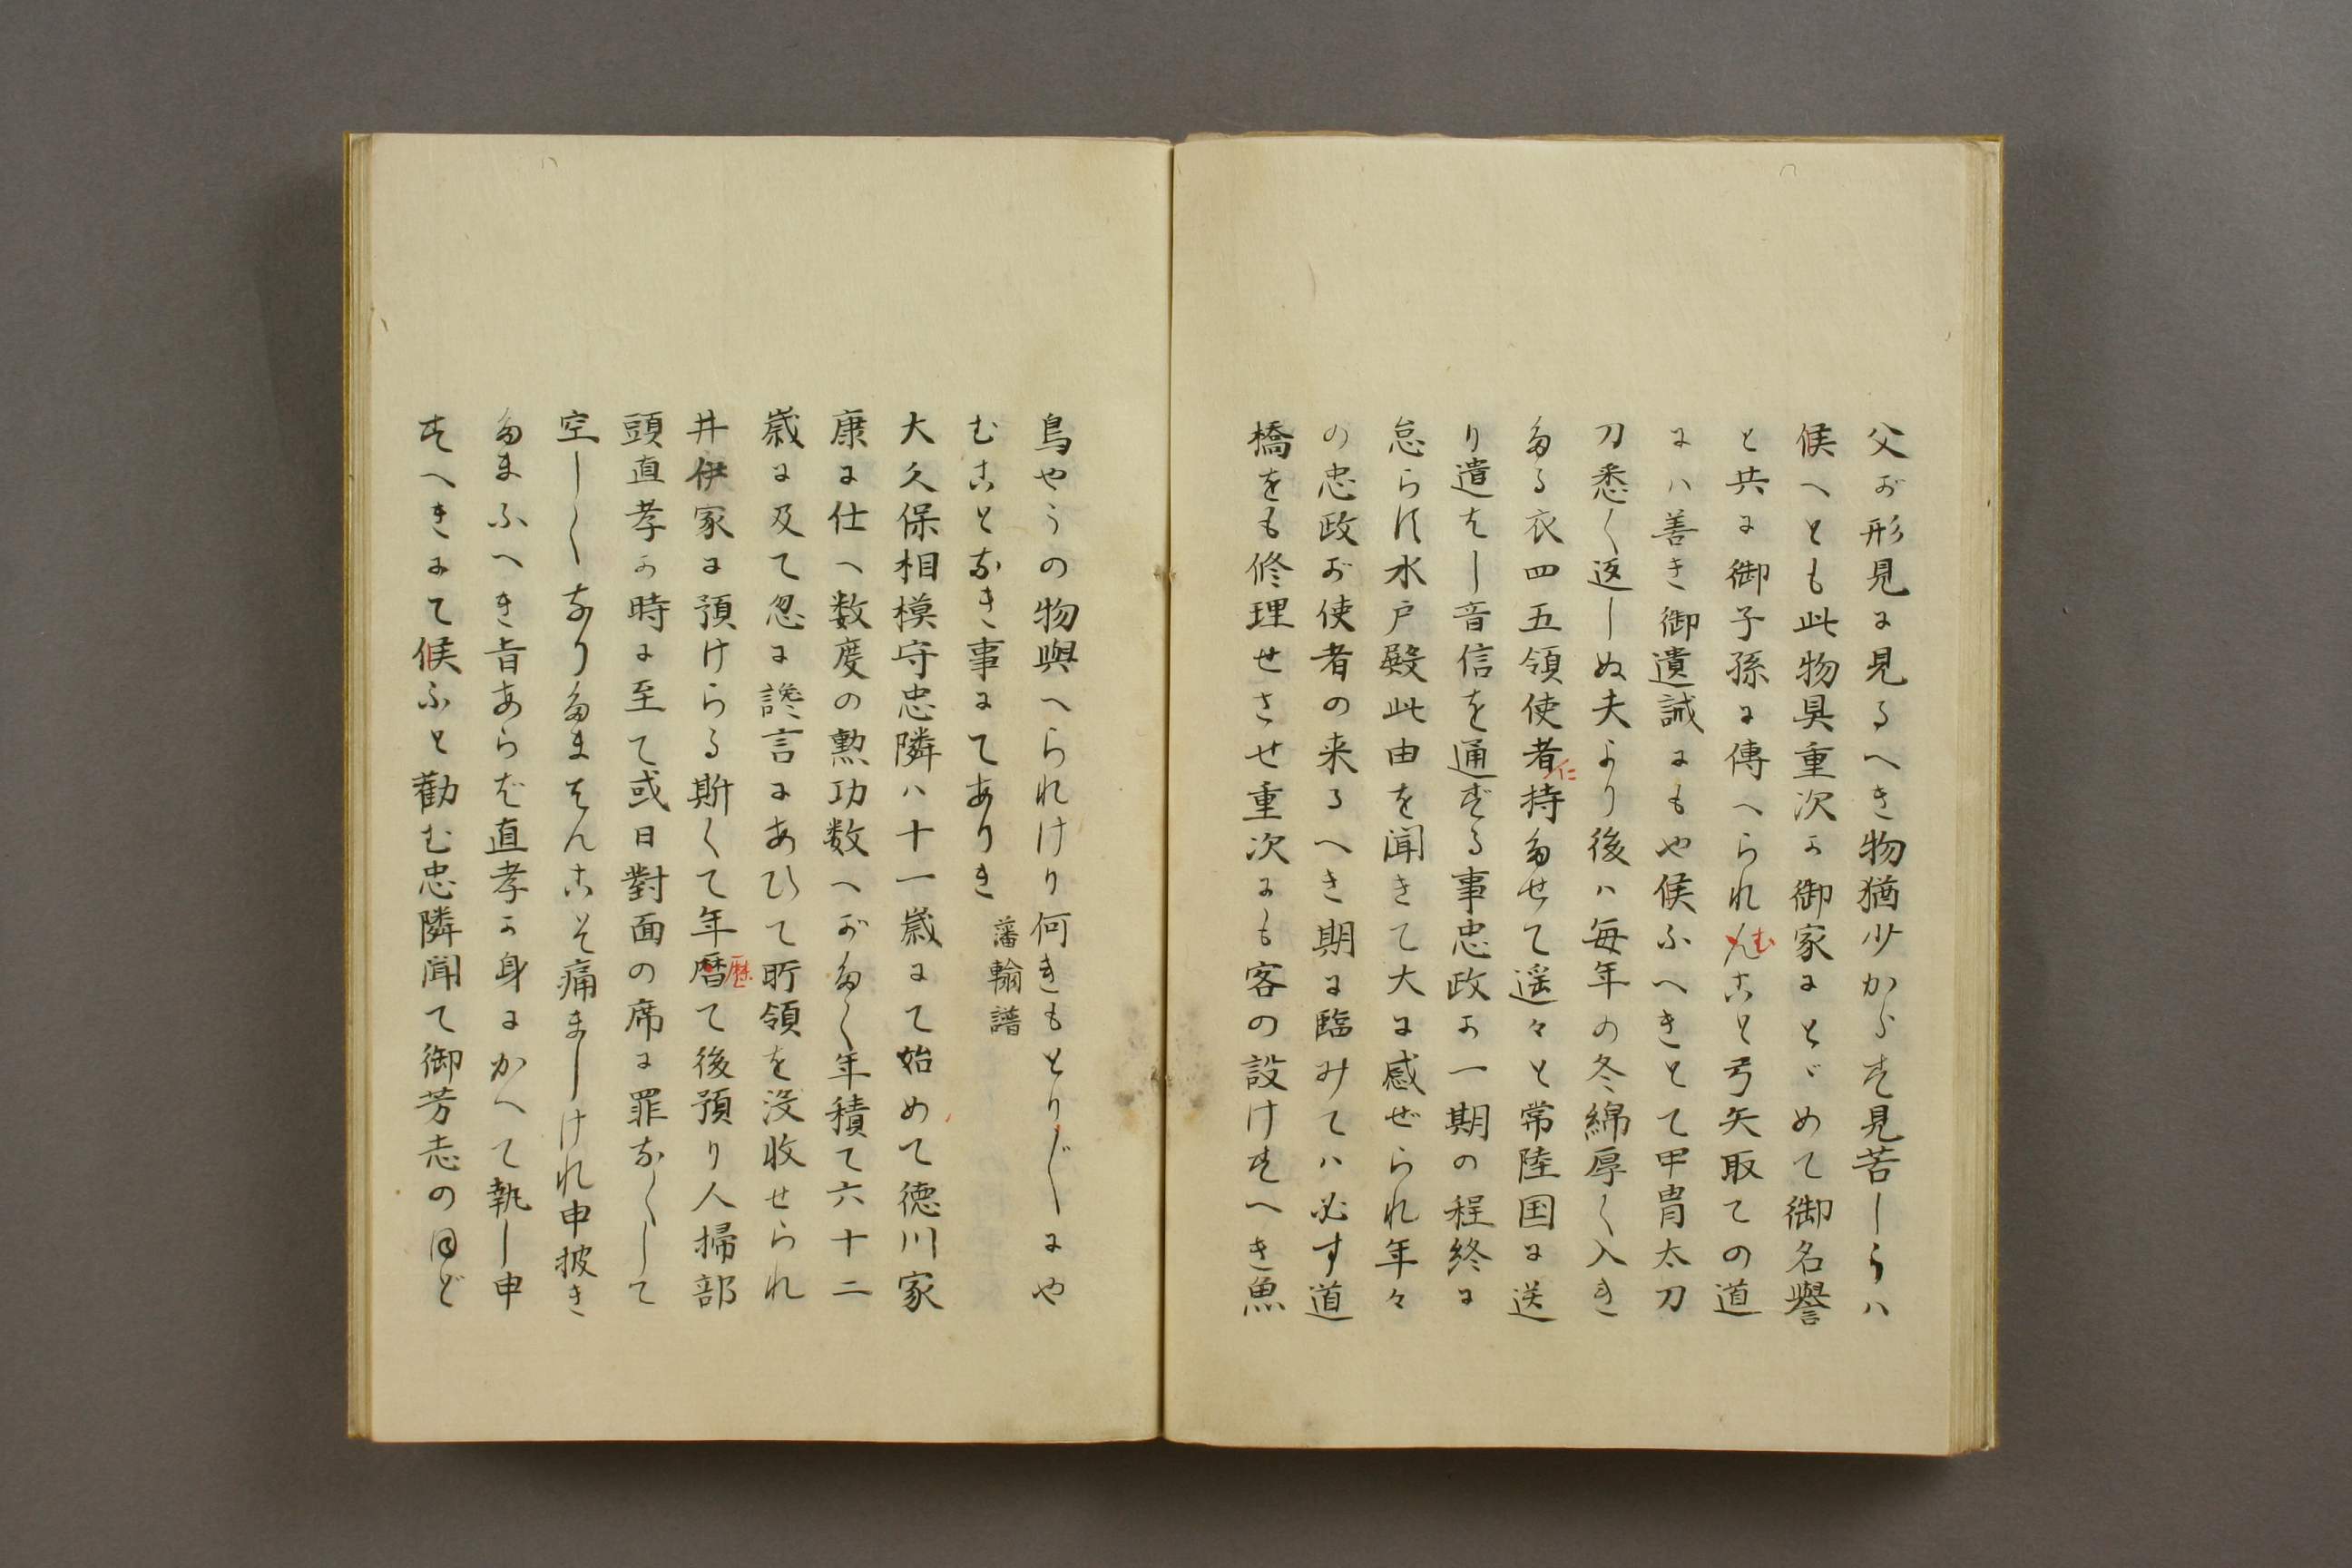 父が形見に見るへき物猶少からす見苦しうハ
候へとも此物具重次か御家にとゞめて御名譽
と共に御子孫に傳へられんむこと弓矢取ての道
にハ善き御遺誡にもや候ふへきとて甲冑太刀
刀悉く返しぬ夫より後ハ毎年の冬綿厚く入き
たる衣四五領使者仁持たせて遥々と常陸国に送
り遣はし音信を通ずる事忠政か一期の程終に
怠らす水戸殿此由を聞きて大に感ぜられ年々
の忠政が使者の来るへき期に臨みてハ必す道
橋をも修理せさせ重次にも客の設けすへき魚
鳥やうの物與へられけり何きもとり〴〵にや
むことなき事にてありき 藩輪譜
大久保相模守忠隣ハ十一歳にて始めて徳川家
康に仕へ数度の勲功数へがたく年積て六十二
歳に及て忽に讒言にあひて所領を没收せられ
井伊家に預けらる斯くて年暦歴て後預り人掃部
頭直孝か時に至て或日對面の席に罪なくして
空しくなりたまはんこそ痛ましけれ申披き
たまふへき旨あらば直孝か身にかへて執し申
すへきにて候ふと勸む忠隣聞て御芳志のほど